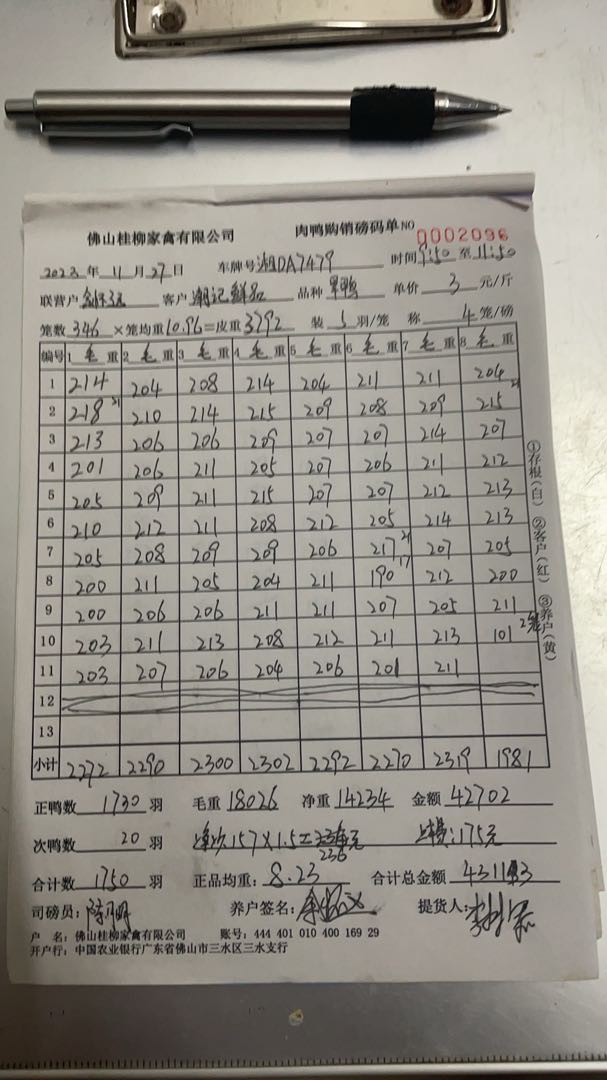 佛山桂柳家禽有限公司 肉鸭购销磅码单 NO 0002096
2023 年 11 月 27 日 车牌号 湘DA7479 时间 9:50 至 11:50
联营户 客户 潮记鲜品 品种 旱鸭 单价 3 元/斤
笼数 346 ×笼均重 10.96 =皮重 3792 装 5 羽/笼 称 4 笼/磅
编号 1 毛 重 2 毛 重 3 毛 重 4 毛 重 5 毛 重 6 毛 重 7 毛 重 8 毛 重
1 214 204 208 214 204 211 211 204
2 218 21 210 214 215 209 208 209 215 21
3 213 206 206 209 207 207 214 207
4 201 206 211 205 207 206 211 212
5 205 209 211 215 207 207 212 213
6 210 212 211 208 212 205 214 213
7 205 208 209 209 206 217 21 207 205
8 200 211 205 204 211 190 17 212 200
9 200 206 206 211 211 207 205 211
10 203 211 213 208 212 211 213 101 2笼
11 203 207 206 204 206 201 211
12
13
小计 2272 2290 2300 2302 2292 2270 2319 1981
①存根(白) ②客户(红) ③养户(黄)
正鸭数 1730 羽 毛重 18026 净重 14234 金额 42702
次鸭数 20 羽 157×1.5= 236 元 :175元
合计数 1750 羽 正品均重: 8.23 合计总金额 43113
司磅员: 养户签名: 提货人:
户 名: 佛山桂柳家禽有限公司 账号: 444 401 010 400 169 29
开户行: 中国农业银行广东省佛山市三水区三水支行